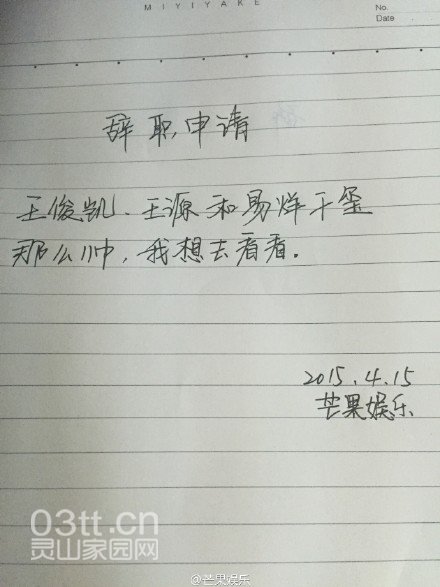 MIYIYAKE
No.
Date
辞职申请
王俊凯、王源和易烊千玺
那么帅，我想去看看。
2015.4.15
芒果娱乐
03tt.cn
灵山家园网
@芒果娱乐